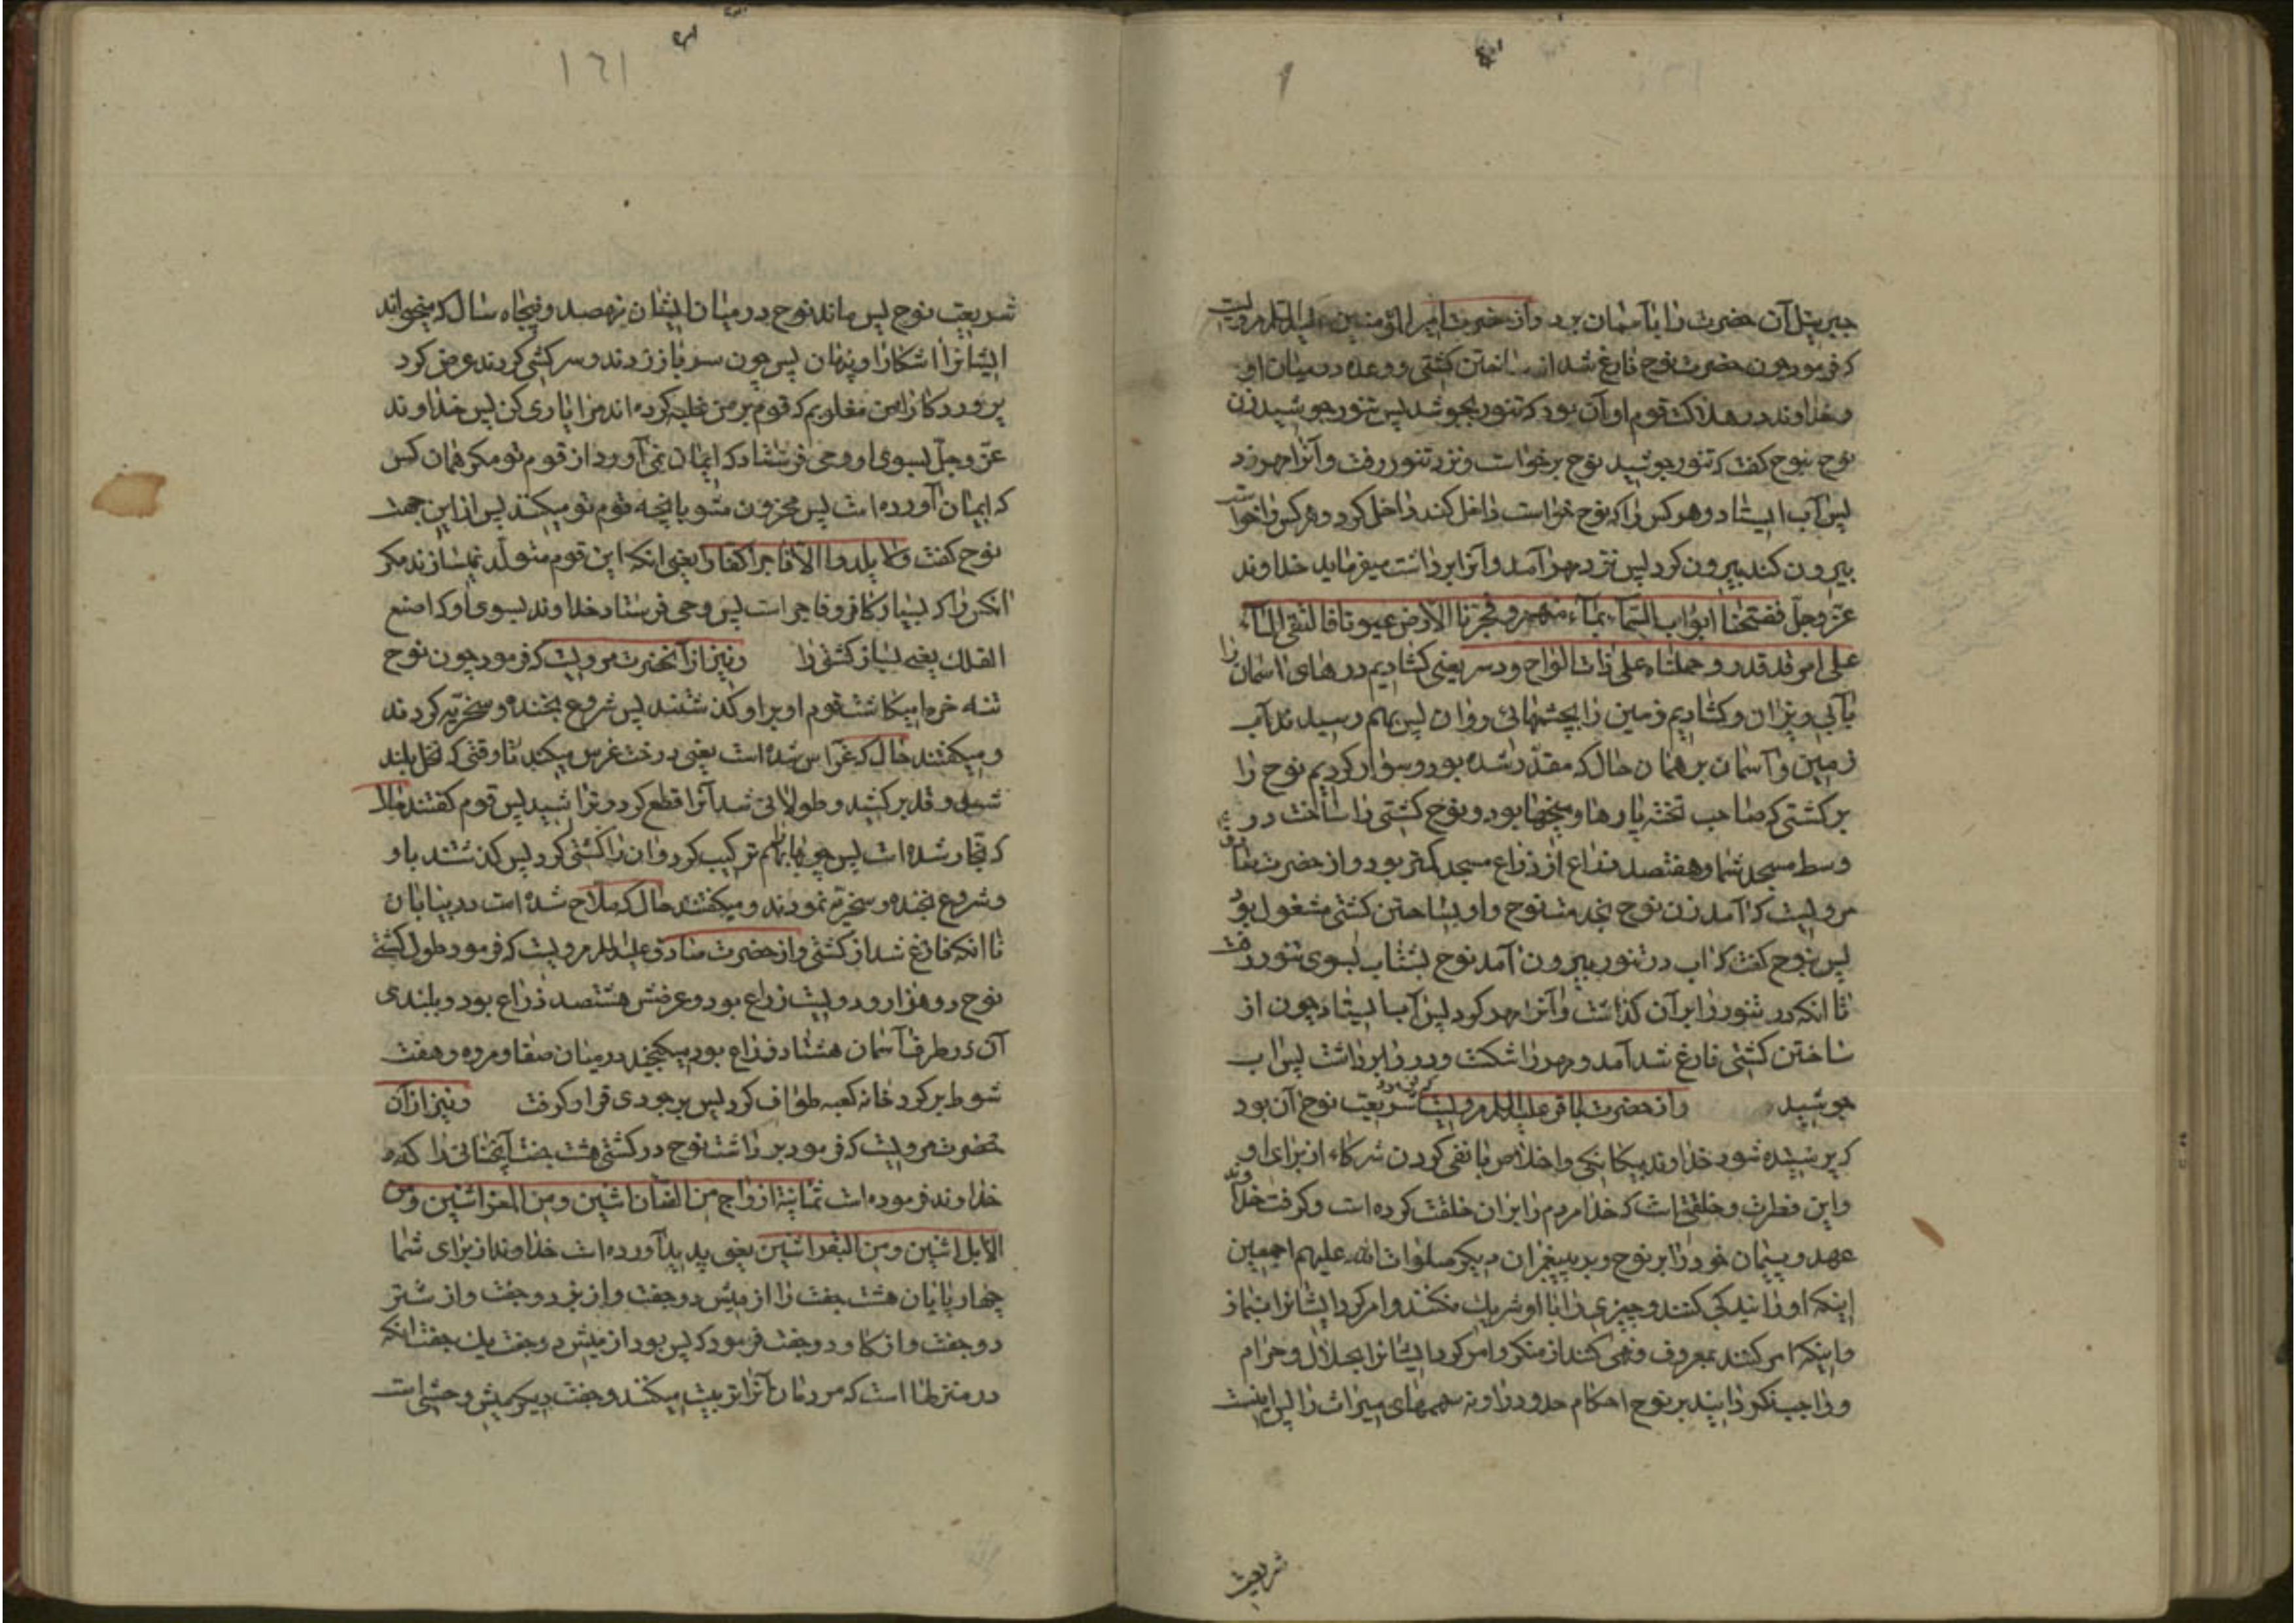 جبرئیل آن حضرت را بآسمان برد و از حضرت امیر المؤمنین علیه السلام مرویست
که فرمود چون حضرت نوح فارغ شد از ساختن کشتی و وعده در میان او
و خداوند در هلاکت قوم او آن بود که تنور بجوشد پس تنور جوشید زن
نوح بنوح کفت که تنور جوشید نوح برخواست و نزد تنور رفت و آنرا مهر زد
پس آب ایستاد و هر کس را که نوح خواست داخل کند داخل کرد و هر کس را خواست
بیرون کند بیرون کرد پس نزد مهر آمد و آنرا برداشت میفرماید خداوند
عز و جل ففتحنا ابواب السماء بماء منهمر و فجرنا الارض عیونا فالتقی الماء
علی امر قد قدر و حملناه علی ذات الواح و دسر یعنی کشادیم درهای اسمان را
بآبی ریزان و کشادیم زمین را بچشمهائی روان پس بهم رسیدند آب
زمین و آسمان بر همان حال که مقدر شده بود و سوار کردیم نوح را
بر کشتی که صاحب تخته پارها و میخها بود و نوح کشتی را ساخت در
وسط مسجد شما و هفتصد ذراع از ذراع مسجد کمتر بود و از حضرت صادق
مرویست که آمد زن نوح بخدمت نوح و او بساختن کشتی مشغول بود
پس بنوح کفت که اب در تنور بیرون آمد نوح بشتاب بسوی تنور رفت
تا انکه در تنور را بر آن کذاشت و آنرا مهر کرد پس آب ایستاد چون از
ساختن کشتی فارغ شد آمد و مهر را شکست و در را برداشت پس اب
جوشید و از حضرت باقر علیه السلام مرویست که فرمود شریعت نوح آن بود
که پرستیده شود خداوند بیکانکی و اخلاص با نفی کردن شرکاء از برای او
و این فطرت و خلقتی است که خدا مردم را بر ان خلقت کرده است و کرفت خداوند
عهد و پیمان خود را بر نوح و بر پیغمبران دیکر صلوات الله علیهم اجمعین
اینکه او را بندکی کنند و چیزی را با او شریک نکنند و امر کرد ایشانرا بنماز
و اینکه امر کنند بمعروف و نهی کنند از منکر و امر کرد ایشانرا بحلال و حرام
و واجب نکردانید بر نوح احکام حدود را و نه سهمهای میراث را پس اینست
شریعت
۱۶۱
شریعت نوح پس ماند نوح در میان ایشان نهصد و پنجاه سال که میخواند
ایشانرا اشکارا و پنهان پس چون سر باز زدند و سرکشی کردند عرض کرد
پروردکارا من مغلوبم که قوم بر من غلبه کرده اند مرا یاری کن پس خداوند
عز و جل بسوی او وحی فرستاد که ایمان نمی آورد از قوم تو مکر همان کس
که ایمان آورده است پس محزون مشو بانچه قوم تو میکنند پس از این جهت
نوح کفت و لا یلدوا الا فاجرا کفارا یعنی انکه این قوم متولد نمیسازند مکر
انکس را که بسیار کافر و فاجر است پس وحی فرستاد خداوند بسوی او که اصنع
الفلک یعنی بساز کشتی را و نیز از آنحضرت مرویست که فرمود چون نوح
تنه خرما میکاشت قوم او بر او کذشتند پس شروع بخنده و سخریه کردند
و میکفتند حال که غراس شده است یعنی درخت غرس میکند تا وقتی که نخل بلند
شد و قد بر کشید و طولانی شد آنرا قطع کرد و تراشید پس قوم کفتند حالا
که نجار شده است پس چوبها را بهم ترکیب کرد و ان را کشتی کرد پس کذشتند باو
و شروع بخنده و سخریه نمودند و میکفتند حال که ملاح شده است در بیابان
تا انکه فارغ شد از کشتی و از حضرت صادق علیه السلام مرویست که فرمود طول کشتی
نوح دو هزار و دویست ذراع بود و عرضش هشتصد ذراع بود و بلندی
آن در طرف آسمان هشتاد ذراع بود میکنجید در میان صفا و مروه و هفت
شوط بر کرد خانه کعبه طواف کرد پس بر جودی قرار کرفت و نیز از آن
حضرت مرویست که فرمود برداشت نوح در کشتی هشت جفت آنچنانی را که
خداوند فرموده است ثمانیة ازواج من الضأن اثنین و من المعز اثنین و من
الابل اثنین و من البقر اثنین یعنی پدید آورده است خداوند از برای شما
چهار پایان هشت جفت را از میش دو جفت و از بز دو جفت و از شتر
دو جفت و از کاو دو جفت فرمود که پس بود از میش دو جفت یک جفت انکه
در منزلها است که مردمان آنرا تربیت میکنند و جفت دیکر میش وحشی است